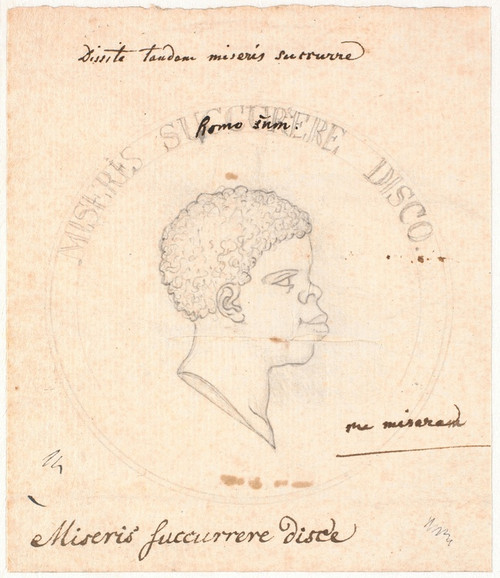 Dissite tandem miseris succurre
MISERIS SUCCURRERE DISCO.
homo sum.
me miseram
Miseris succurrere disce